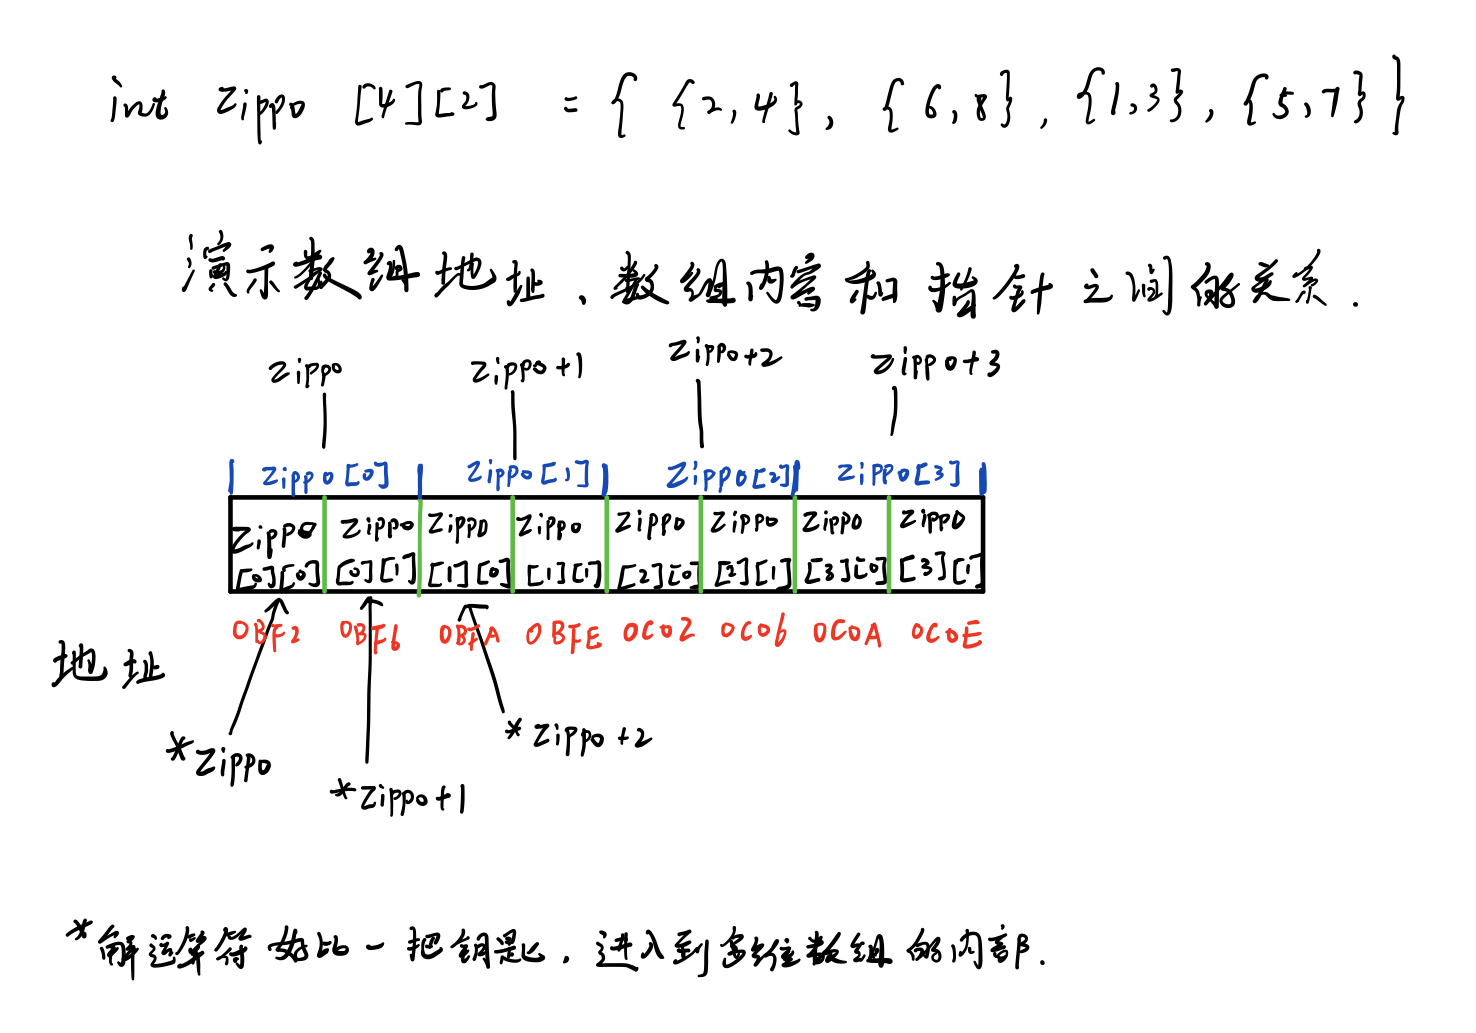 int zippo [4][2] = { {2,4}, {6,8}, {1,3}, {5,7} }
演示数组地址、数组内容和指针之间的关系.
zippo zippo+1 zippo+2 zippo+3
zippo[0] zippo[1] zippo[2] zippo[3]
zippo zippo zippo zippo zippo zippo zippo zippo
[0][0] [0][1] [1][0] [1][1] [2][0] [2][1] [3][0] [3][1]
0BF2 0BF6 0BFA 0BFE 0C02 0C06 0C0A 0C0E
地址
*zippo *zippo+1 *zippo+2
*解运算符好比一把钥匙，进入到多维数组的内部.